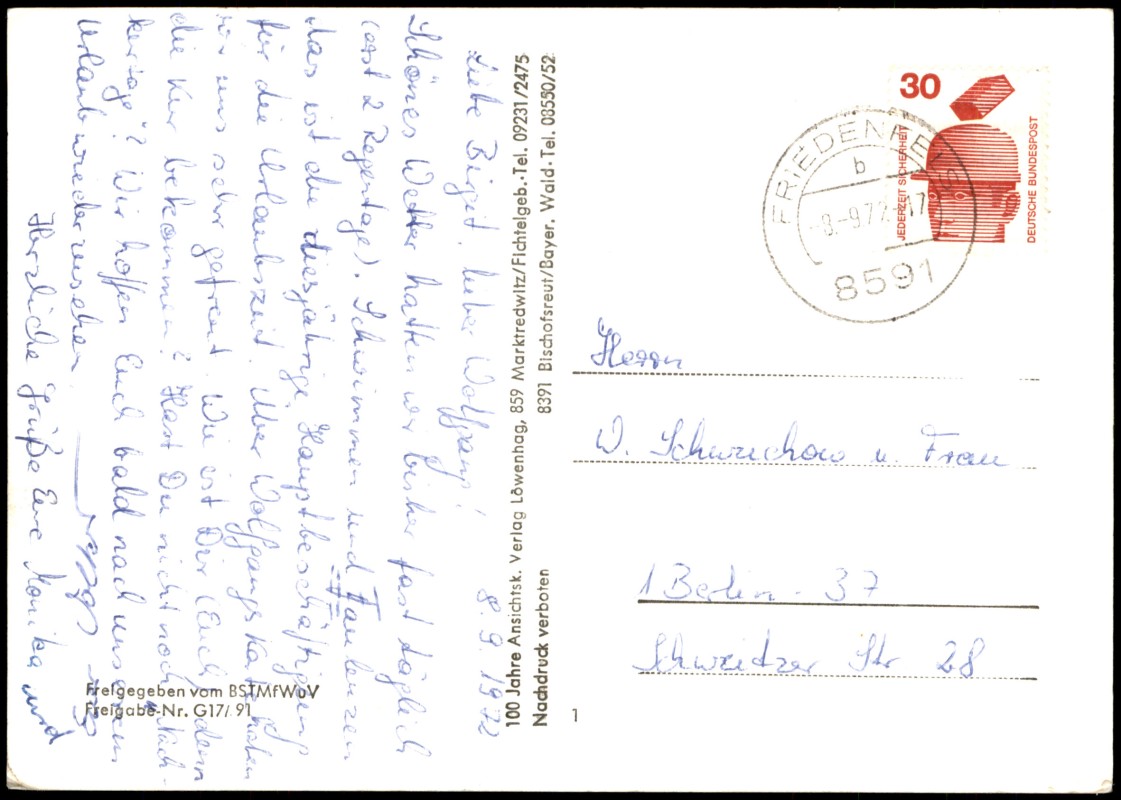 8. 9. 1972
Liebe Birgit, lieber Wolfgang!
Schönes Wetter hatten wir bisher fast täglich
(erst 2 Regentage). Schwimmen und Faulenzen
das ist die diesjährige Hauptbeschäftigung
für die Urlaubszeit. Über Wolfgangs Karte haben
wir uns sehr gefreut. Wie ist Dir (Euch) denn
die Kur bekommen? Hast Du nicht noch "Nach-
kurtage"? Wir hoffen Euch bald nach unserem
Urlaub wiederzusehen.
Herzliche Grüße Eure Monika und
100 Jahre Ansichtsk. Verlag Löwenhag, 859 Marktredwitz/Fichtelgeb.-Tel. 09231/2475
8391 Bischofsreut/Bayer. Wald-Tel. 08550/52
Nachdruck verboten
Freigegeben vom BSTMfWuV
Freigabe-Nr. G17/ 91
1
30
JEDERZEIT SICHERHEIT
DEUTSCHE BUNDESPOST
FRIEDENFELS
b
-8.-9.72-17
8591
Herrn
W. Schwuchow u. Frau
1 Berlin - 37
Schweitzer Str 28